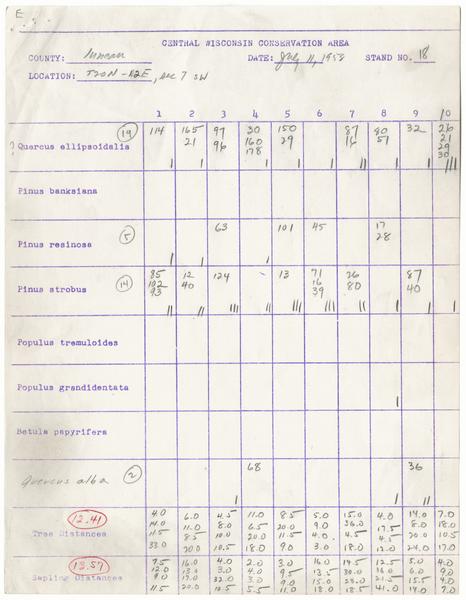 E
CENTRAL WISCONSIN CONSERVATION AREA
COUNTY: Juneau DATE: July 11, 1958 STAND NO. 18
LOCATION: T20N-R2E, sec 7 SW
1 2 3 4 5 6 7 8 9 10
(19) 114 165 97 30 150 87 80 32 26
? Quercus ellipsoidalis 21 96 160 29 16 51 21
178 29
30
| | | | | | |||
Pinus banksiana
63 101 45 17
Pinus resinosa (5) 28
| | |
85 12 124 13 71 26 87
Pinus strobus (14) 102 40 16 80 40
93 39
|| || ||| ||| ||| || | || |
Populus tremuloides
Populus grandidentata
|
Betula papyrifera
68 36
Quercus alba (2)
| | ||
12.41 4.0 6.0 4.5 11.0 8.5 5.0 15.0 4.0 14.0 7.0
14.0 11.0 8.0 6.5 20.0 9.0 36.0 17.5 8.0 18.0
Tree Distances 11.5 8.5 10.5 20.0 11.5 4.0 4.5 4.5 20.0 10.5
33.0 20.0 10.5 18.0 9.0 3.0 18.0 12.0 24.0 17.0
13.57 7.5 16.0 4.0 2.0 3.0 16.0 14.5 12.5 5.0 4.0
12.0 13.0 3.0 4.0 9.5 13.5 30.0 36.0 6.0 9.0
Sapling Distances 9.0 17.0 32.0 3.0 9.0 15.0 23.0 21.5 15.5 4.0
11.5 20.0 10.5 5.5 11.0 18.0 18.5 41.0 14.0 7.0